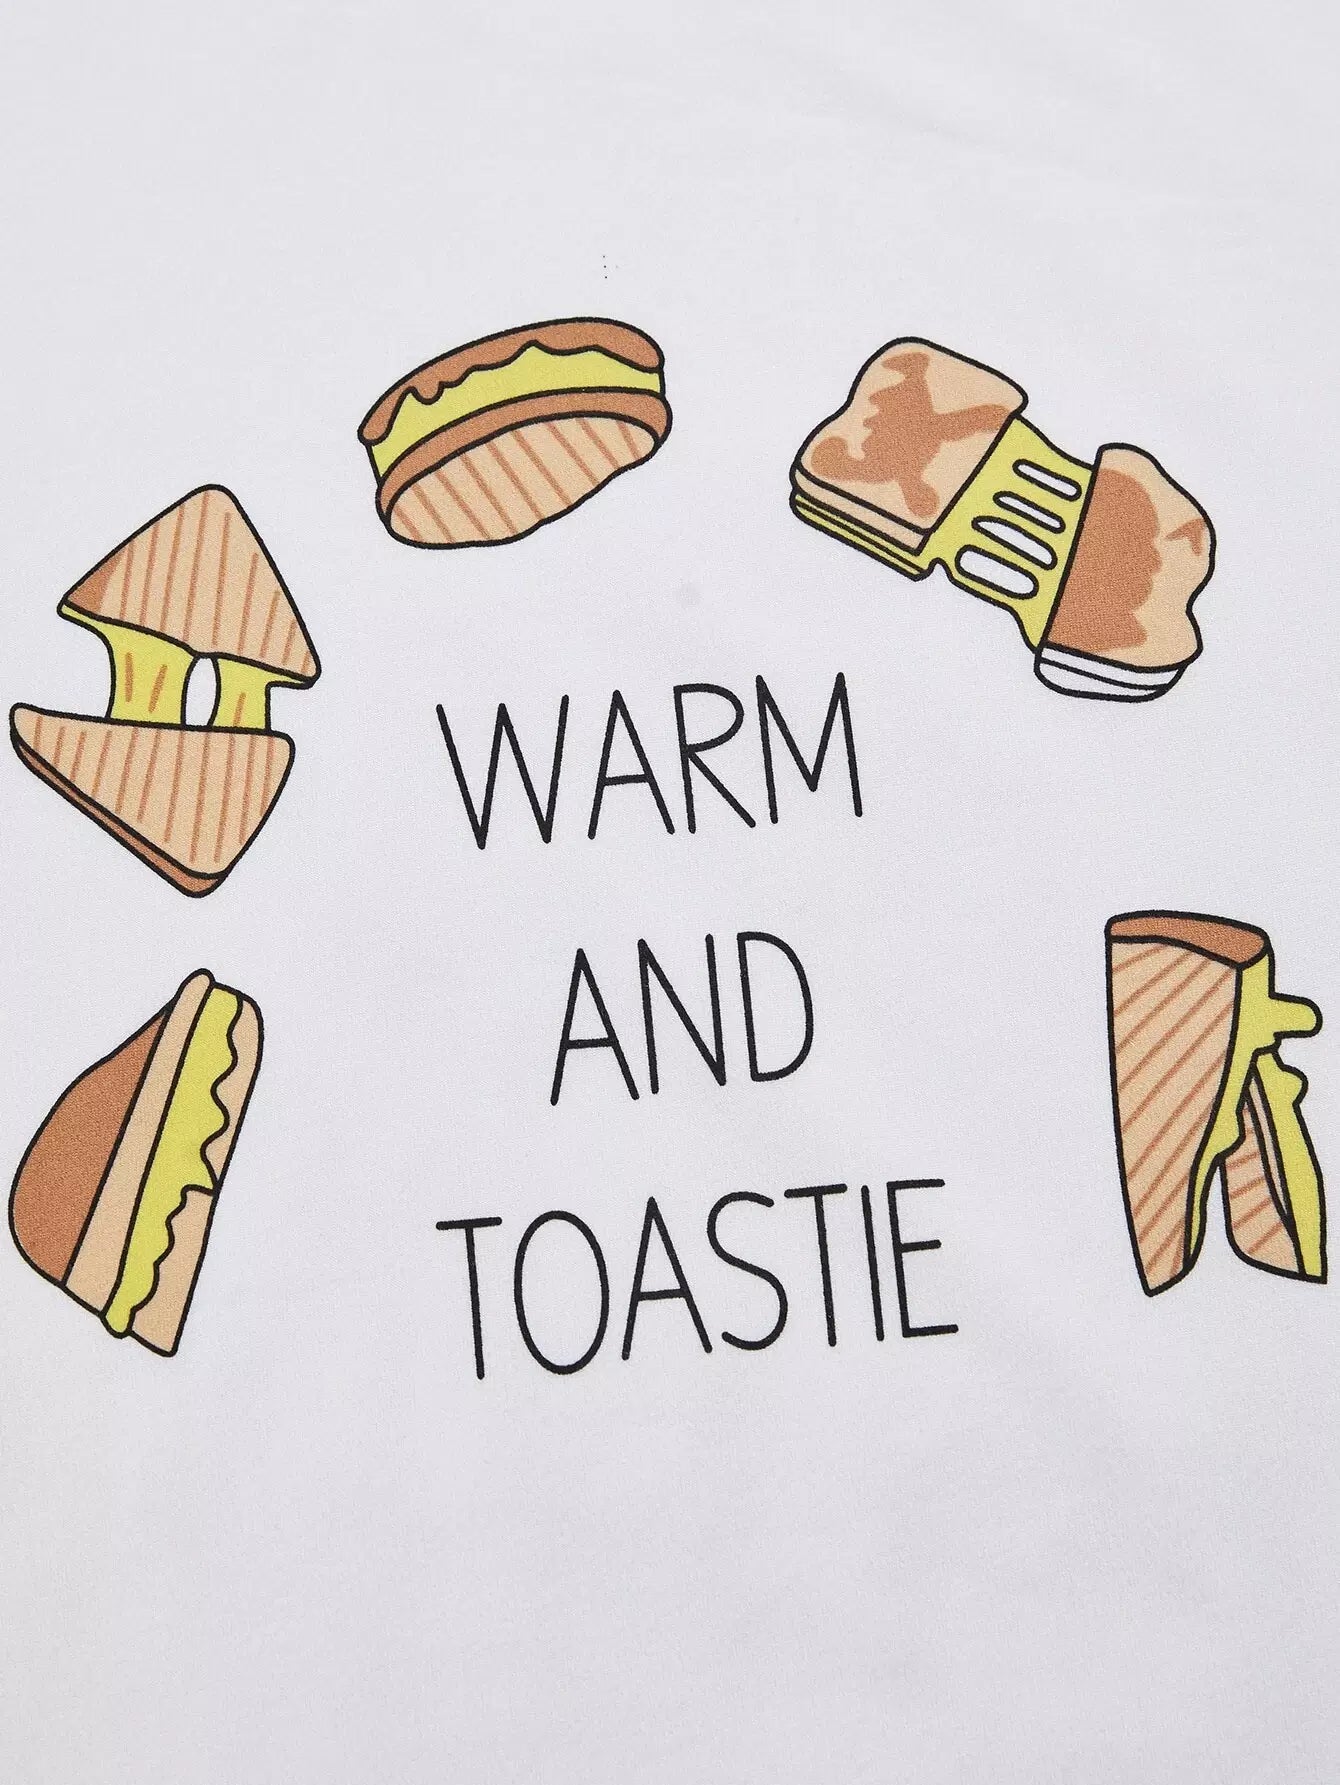 WARM
AND
TOASTIE